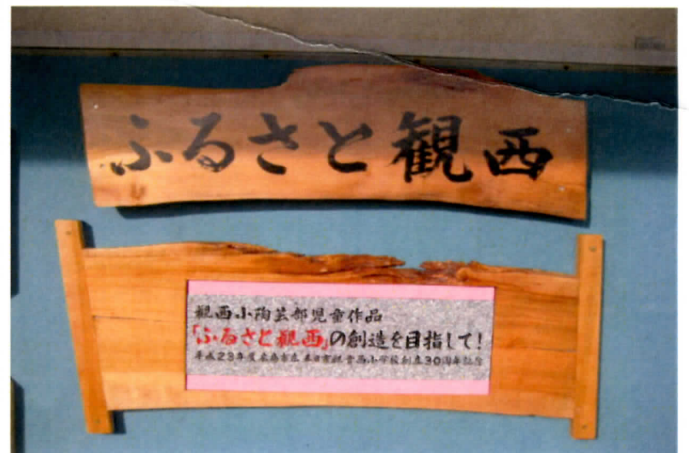 ふるさと観西
観西小陶芸部児童作品
「ふるさと観西」の創造を目指して!
平成23年度広島市立五日市観音西小学校創立30周年記念